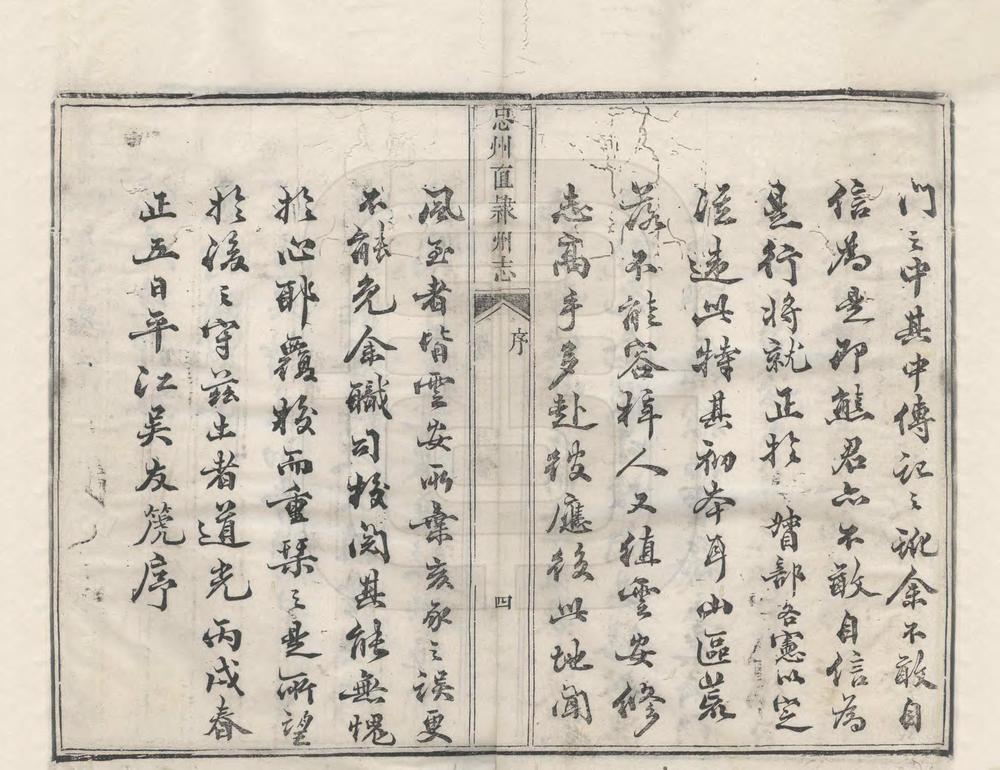 門之中其中傳記之訛余不敢自
信為是即熊君亦不敢自信為
是行將就正於督部各憲以定
從違此特其初本耳山區崑
落不能容梓人又值雲安修
志高手多赴彼應役此地聞
忠州直隸州志
序
四
風至者皆雲安所棄亥豕之誤更
不能免余職司校閱其能無愧
於心耶覆校而重琹之是所望
於後之守茲土者道光丙戌春
正五日平江吳友箎序